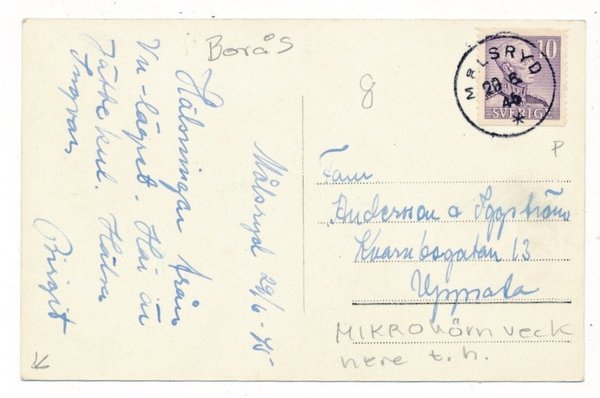 Borås
8
Målsryd 29/6-45
Hälsningar från
Vu-lägret. Här är
jättekul. Hälsa
Ingvar.
Birgit
MÅLSRYD
29 6
45
10
SVERIGE
P
Fam
Andersson o Iggström
Kvarnbogatan 13
Uppsala
MIKROhörnveck
nere t.h.